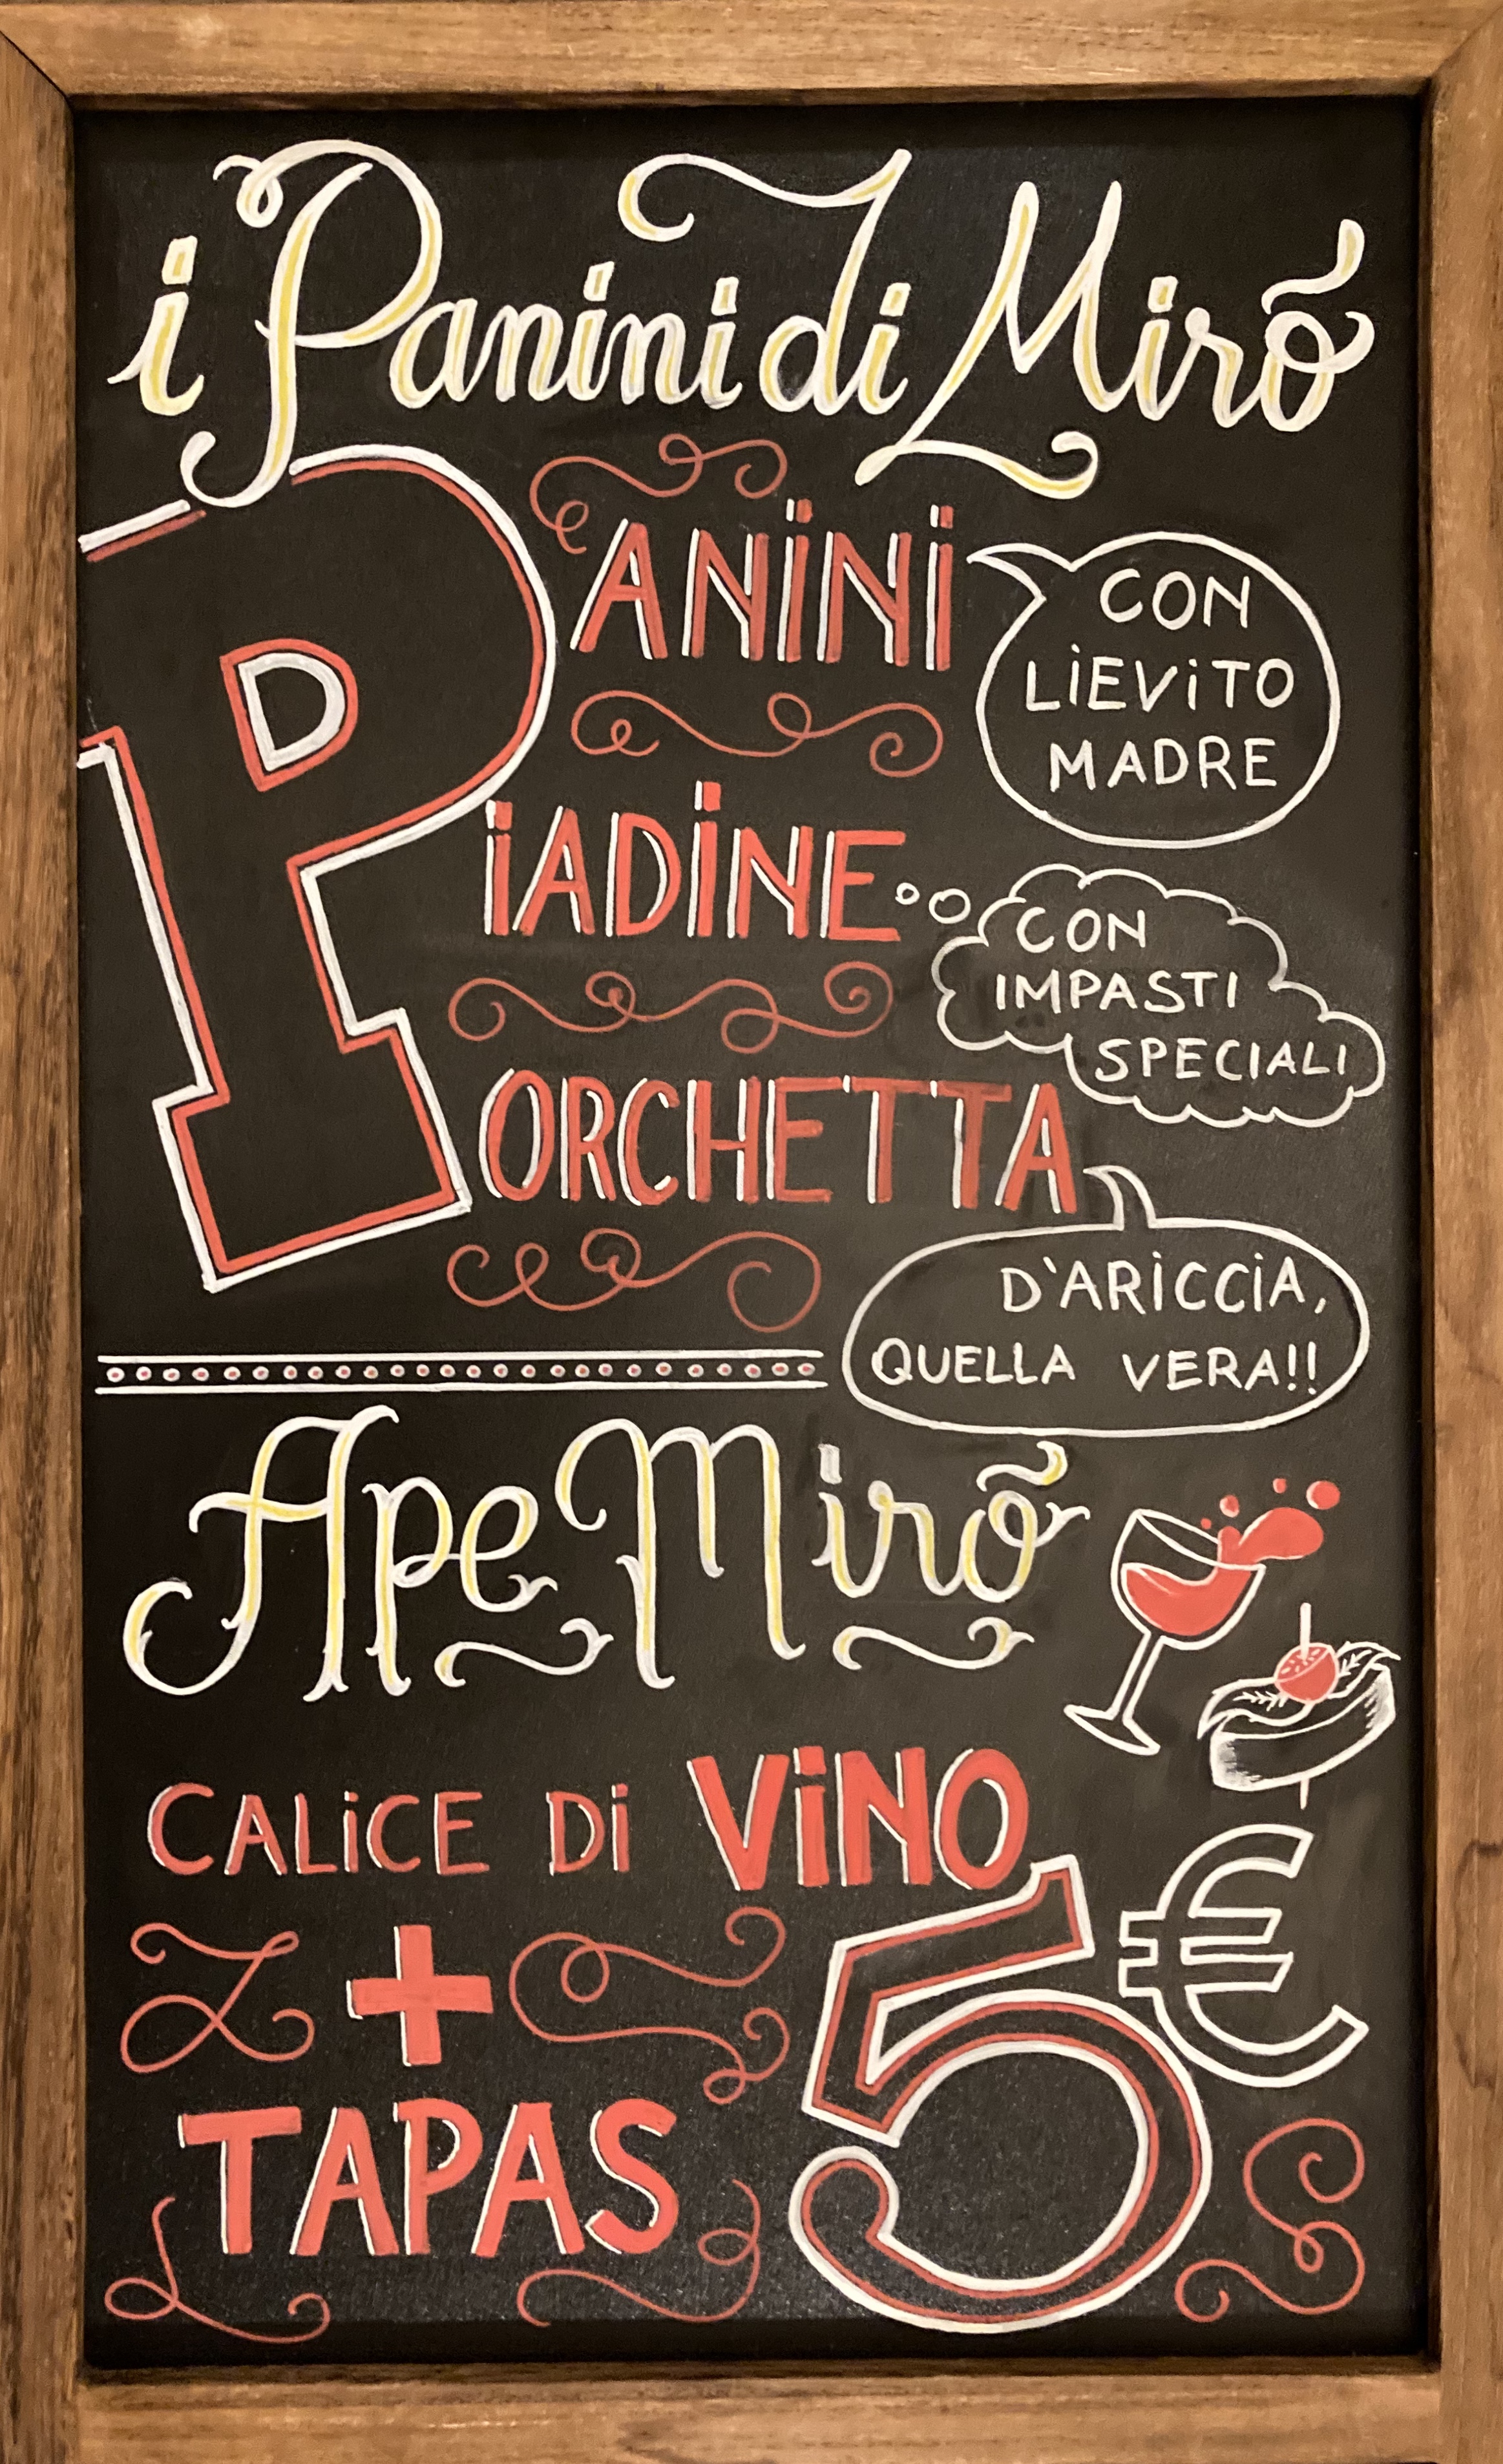 i Panini di Miró
PANiNi
CON
LiEViTO
MADRE
PiADiNE
CON
IMPASTI
SPECIALI
PORCHETTA
D'ARiCCiA,
QUELLA VERA!!
Ape Miró
CALiCE Di ViNO
+
TAPAS
5€